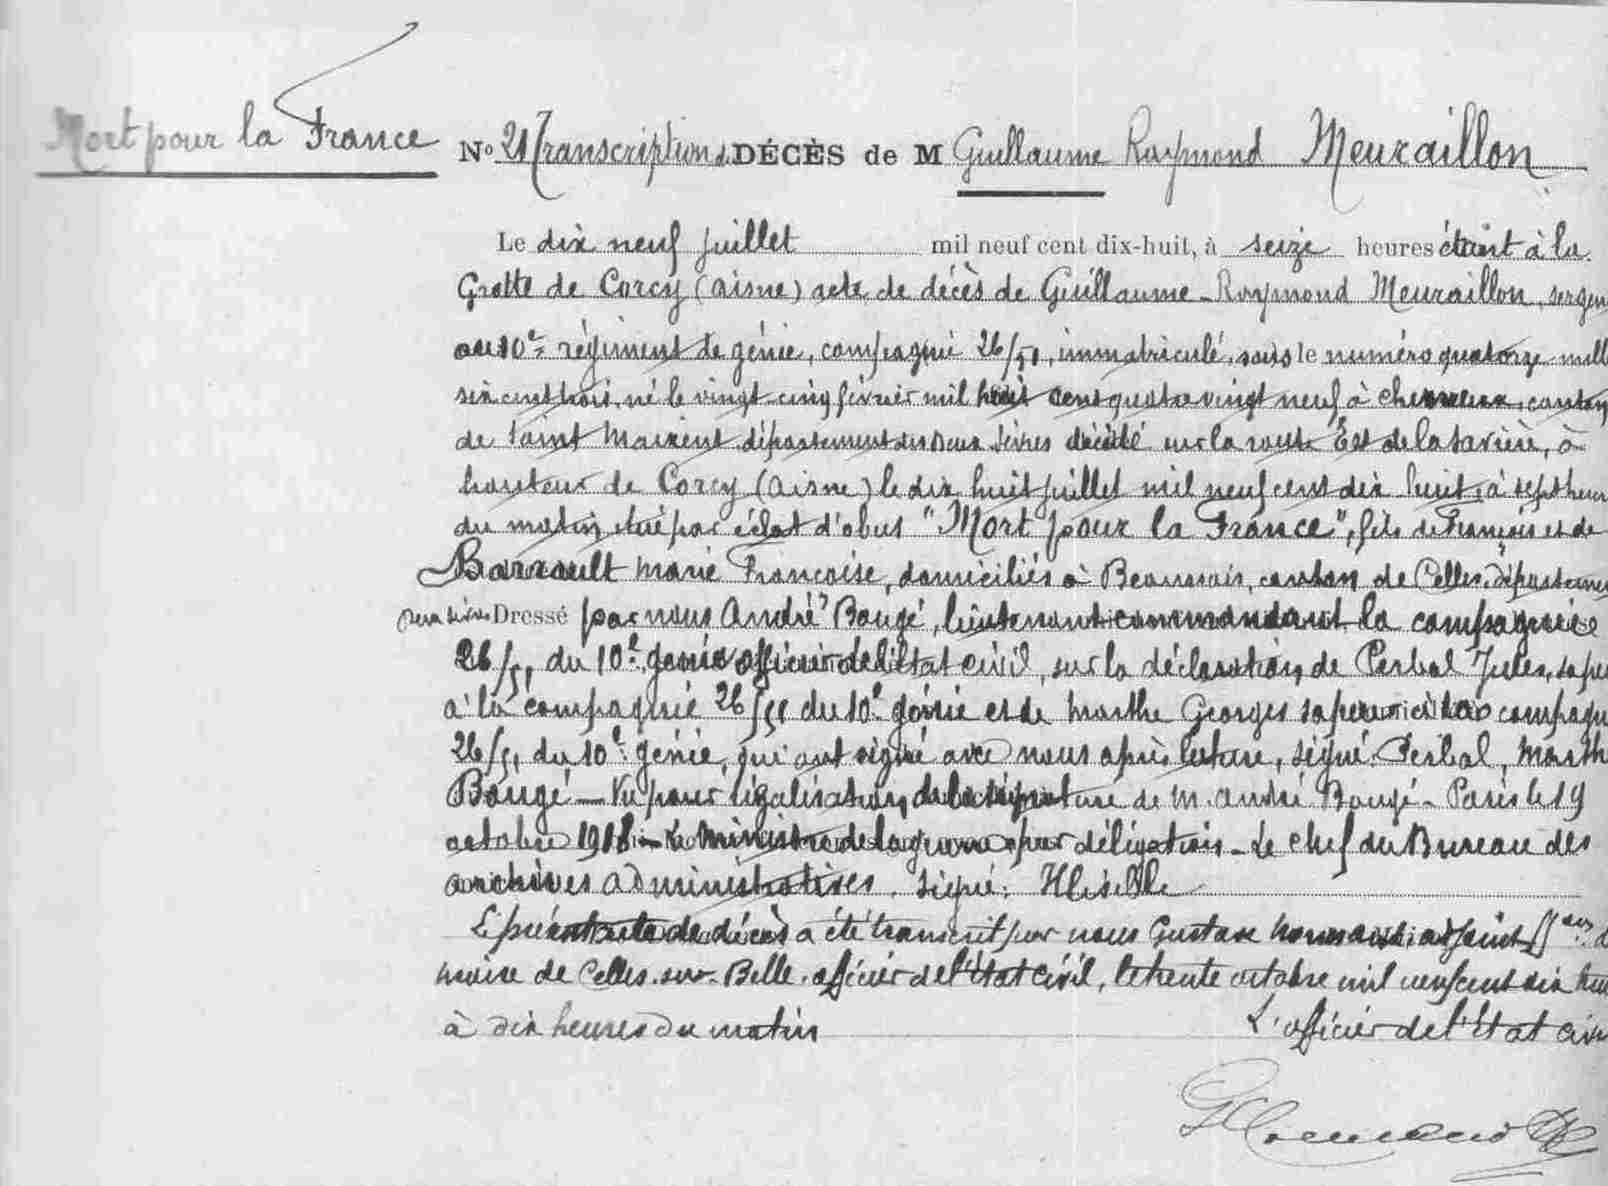 Mort pour la France
No 21 Transcription de DÉCÈS de M Guillaume Raymond Meuraillon
Le dix neuf juillet mil neuf cent dix-huit, à seize heures étant à la
Grotte de Corcy (Aisne) acte de décès de Guillaume-Raymond Meuraillon, sergen
au 10e régiment de génie, compagnie 26/51, immatriculé, sous le numéro quatorze mill
six cent trois, né le vingt-cinq février mil huit cent quatre vingt neuf à canton
de Saint Maixent département des Deux Sèvres décédé sur la route Est de la à
hauteur de Corcy (Aisne) le dix huit juillet mil neuf cent dix huit, à sept heur
du matin, tué par éclat d'obus "Mort pour la France", fils de François et de
Barrault Marie Françoise, domiciliés à Beaussais, canton de Celles, départemen
Deux Sèvres Dressé par nous André Bougé, lieutenant commandant la compagnie
26/51 du 10e génie officier de l'Etat civil, sur la déclaration, de Perbal Jules, sapeu
à la compagnie 26/51 du 10e génie et de Marthe Georges sapeur à la compagn
26/51 du 10e génie, qui ont signé avec nous après lecture, signé: Perbal, Marth
Bougé - Vu pour légalisation, de la signature de M. André Bougé - Paris le 19
octobre 1918 - Le Ministre de la guerre par délégation - Le Chef du Bureau des
archives administratives. signé:
Le présent acte de décès a été transcrit par nous Gustave adjoint
maire de Celles-sur-Belle, officier de l'Etat Civil, le trente octobre mil neuf cent dix hui
à dix heures du matin L'officier de l'Etat civi